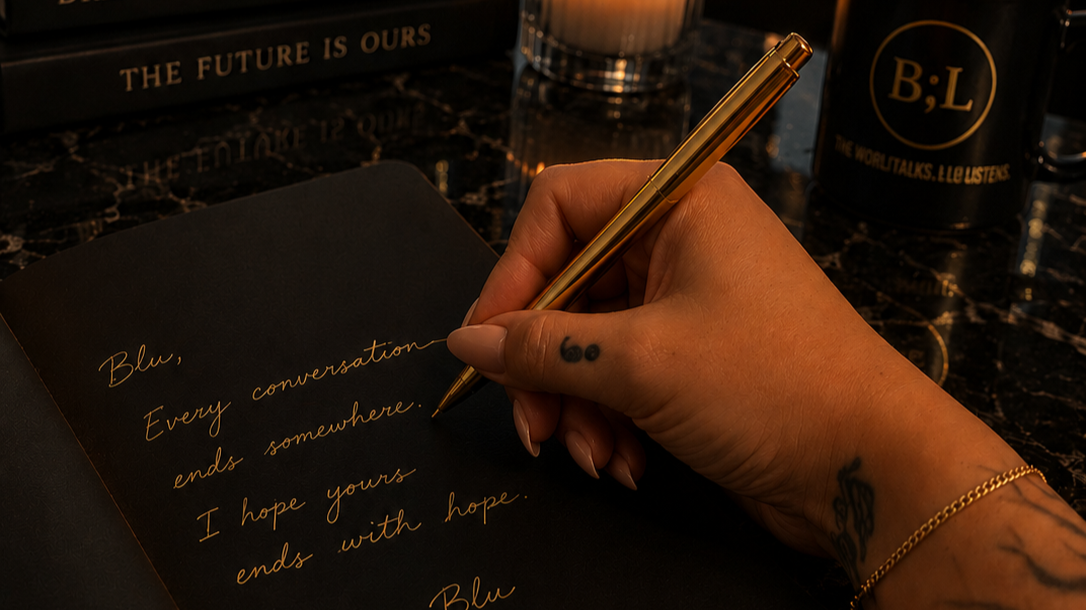 THE FUTURE IS OURS
B;L
THE LISTENS.
Blu,
Every conversation
ends somewhere.
I hope yours
ends with hope.
Blu